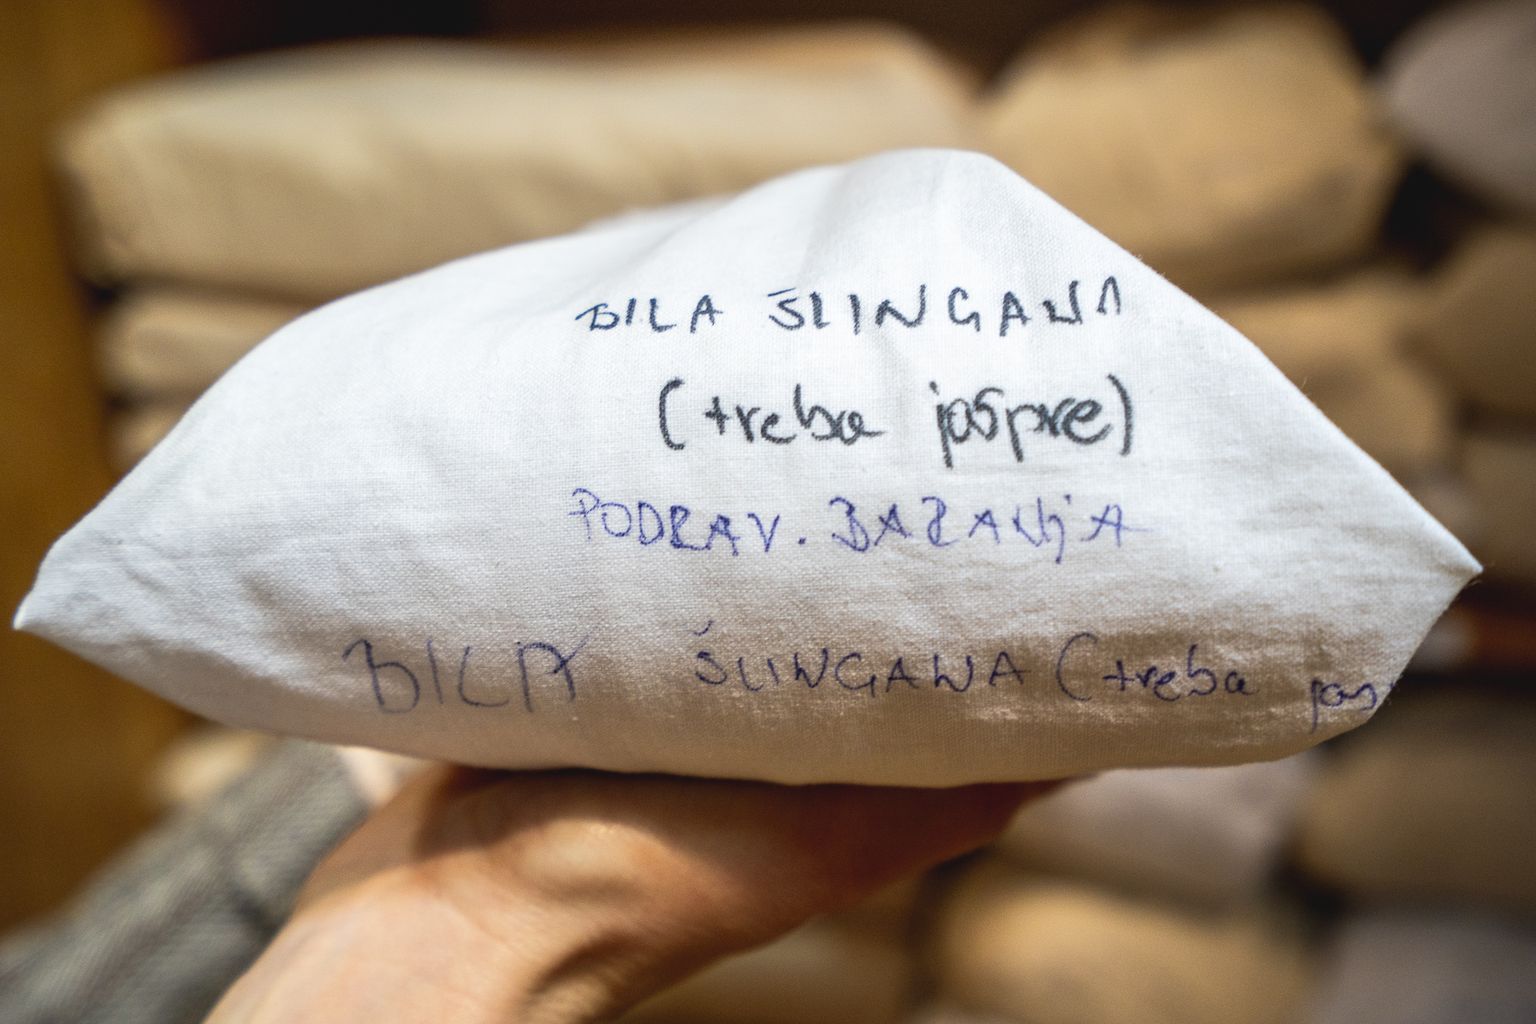 BILA ŠLINGANA
(treba jaspre)
PODRAV. BARANJA
BILA ŠLINGANA (treba jas